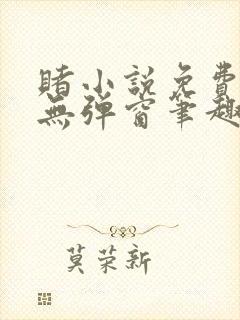 賭小説免費
無彈窗筆趣
莫荣新